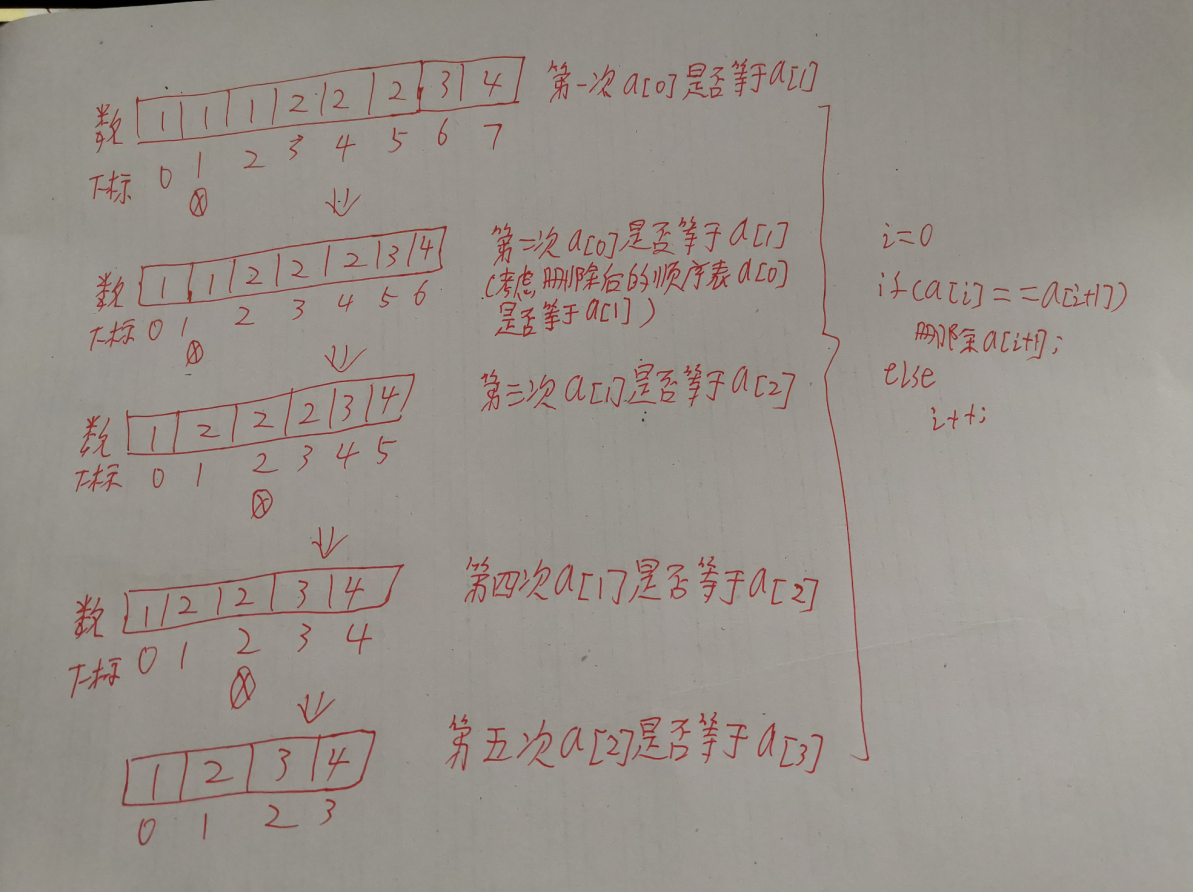 数 1 1 1 2 2 2 3 4 第一次a[0]是否等于a[1]
下标 0 1 2 3 4 5 6 7
数 1 1 2 2 2 3 4 第二次a[0]是否等于a[1]
(考虑删除后的顺序表a[0]
是否等于a[1])
下标 0 1 2 3 4 5 6
数 1 2 2 2 3 4 第三次a[1]是否等于a[2]
下标 0 1 2 3 4 5
数 1 2 2 3 4 第四次a[1]是否等于a[2]
下标 0 1 2 3 4
1 2 3 4 第五次a[2]是否等于a[3]
0 1 2 3
i=0
if(a[i]==a[i+1])
删除a[i+1];
else
i++;